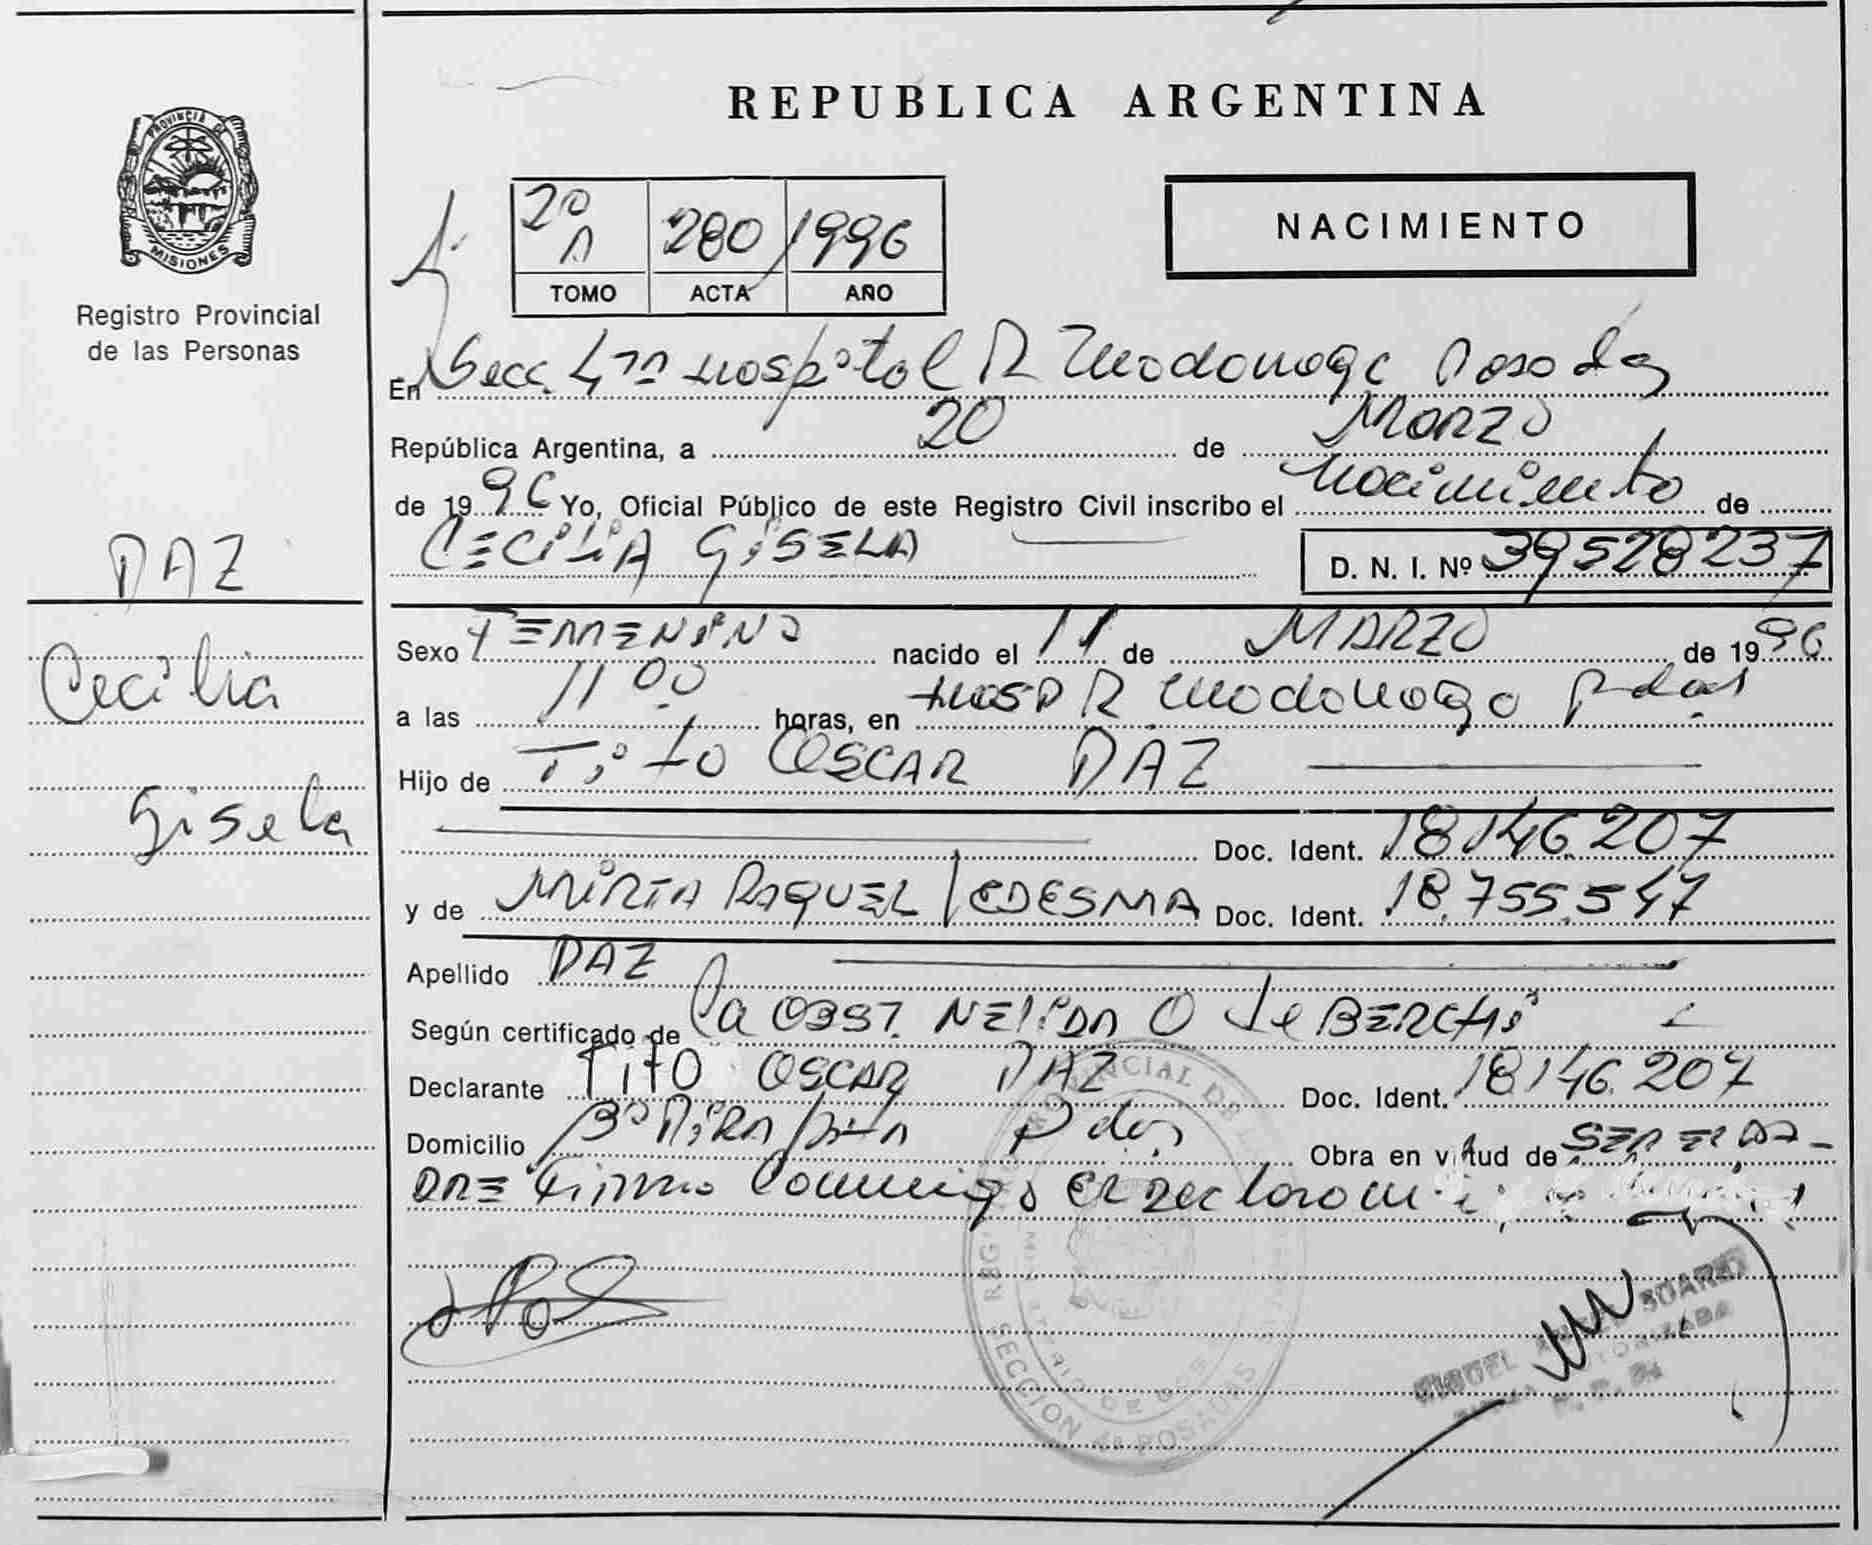 REPUBLICA ARGENTINA
PROVINCIA DE MISIONES
Registro Provincial
de las Personas
2º A 280 1996
TOMO ACTA AÑO
NACIMIENTO
En Secc. 4ta Hospital R Madariaga Posadas
República Argentina, a 20 de Marzo
de 1996 Yo, Oficial Público de este Registro Civil inscribo el Nacimiento de
CECILIA GISELA D. N. I. Nº 39528237
DAZ
Cecilia
Gisela
Sexo FEMENINO nacido el 11 de MARZO de 1996
a las 11 00 horas, en Hosp R. Madariaga Pdas
Hijo de Tito OSCAR DAZ
Doc. Ident. 18.146.207
y de MIRTA RAQUEL LEDESMA Doc. Ident. 18.755.547
Apellido DAZ
Según certificado de la OBST. NELIDA O de BERCHI
Declarante TITO OSCAR DAZ Doc. Ident. 18.146.207
Domicilio Bº Pdas Obra en virtud de SER EL PA-
DRE Firma Conmigo el Declarante
SECCION 4ª POSADAS
MIGUEL SUAREZ